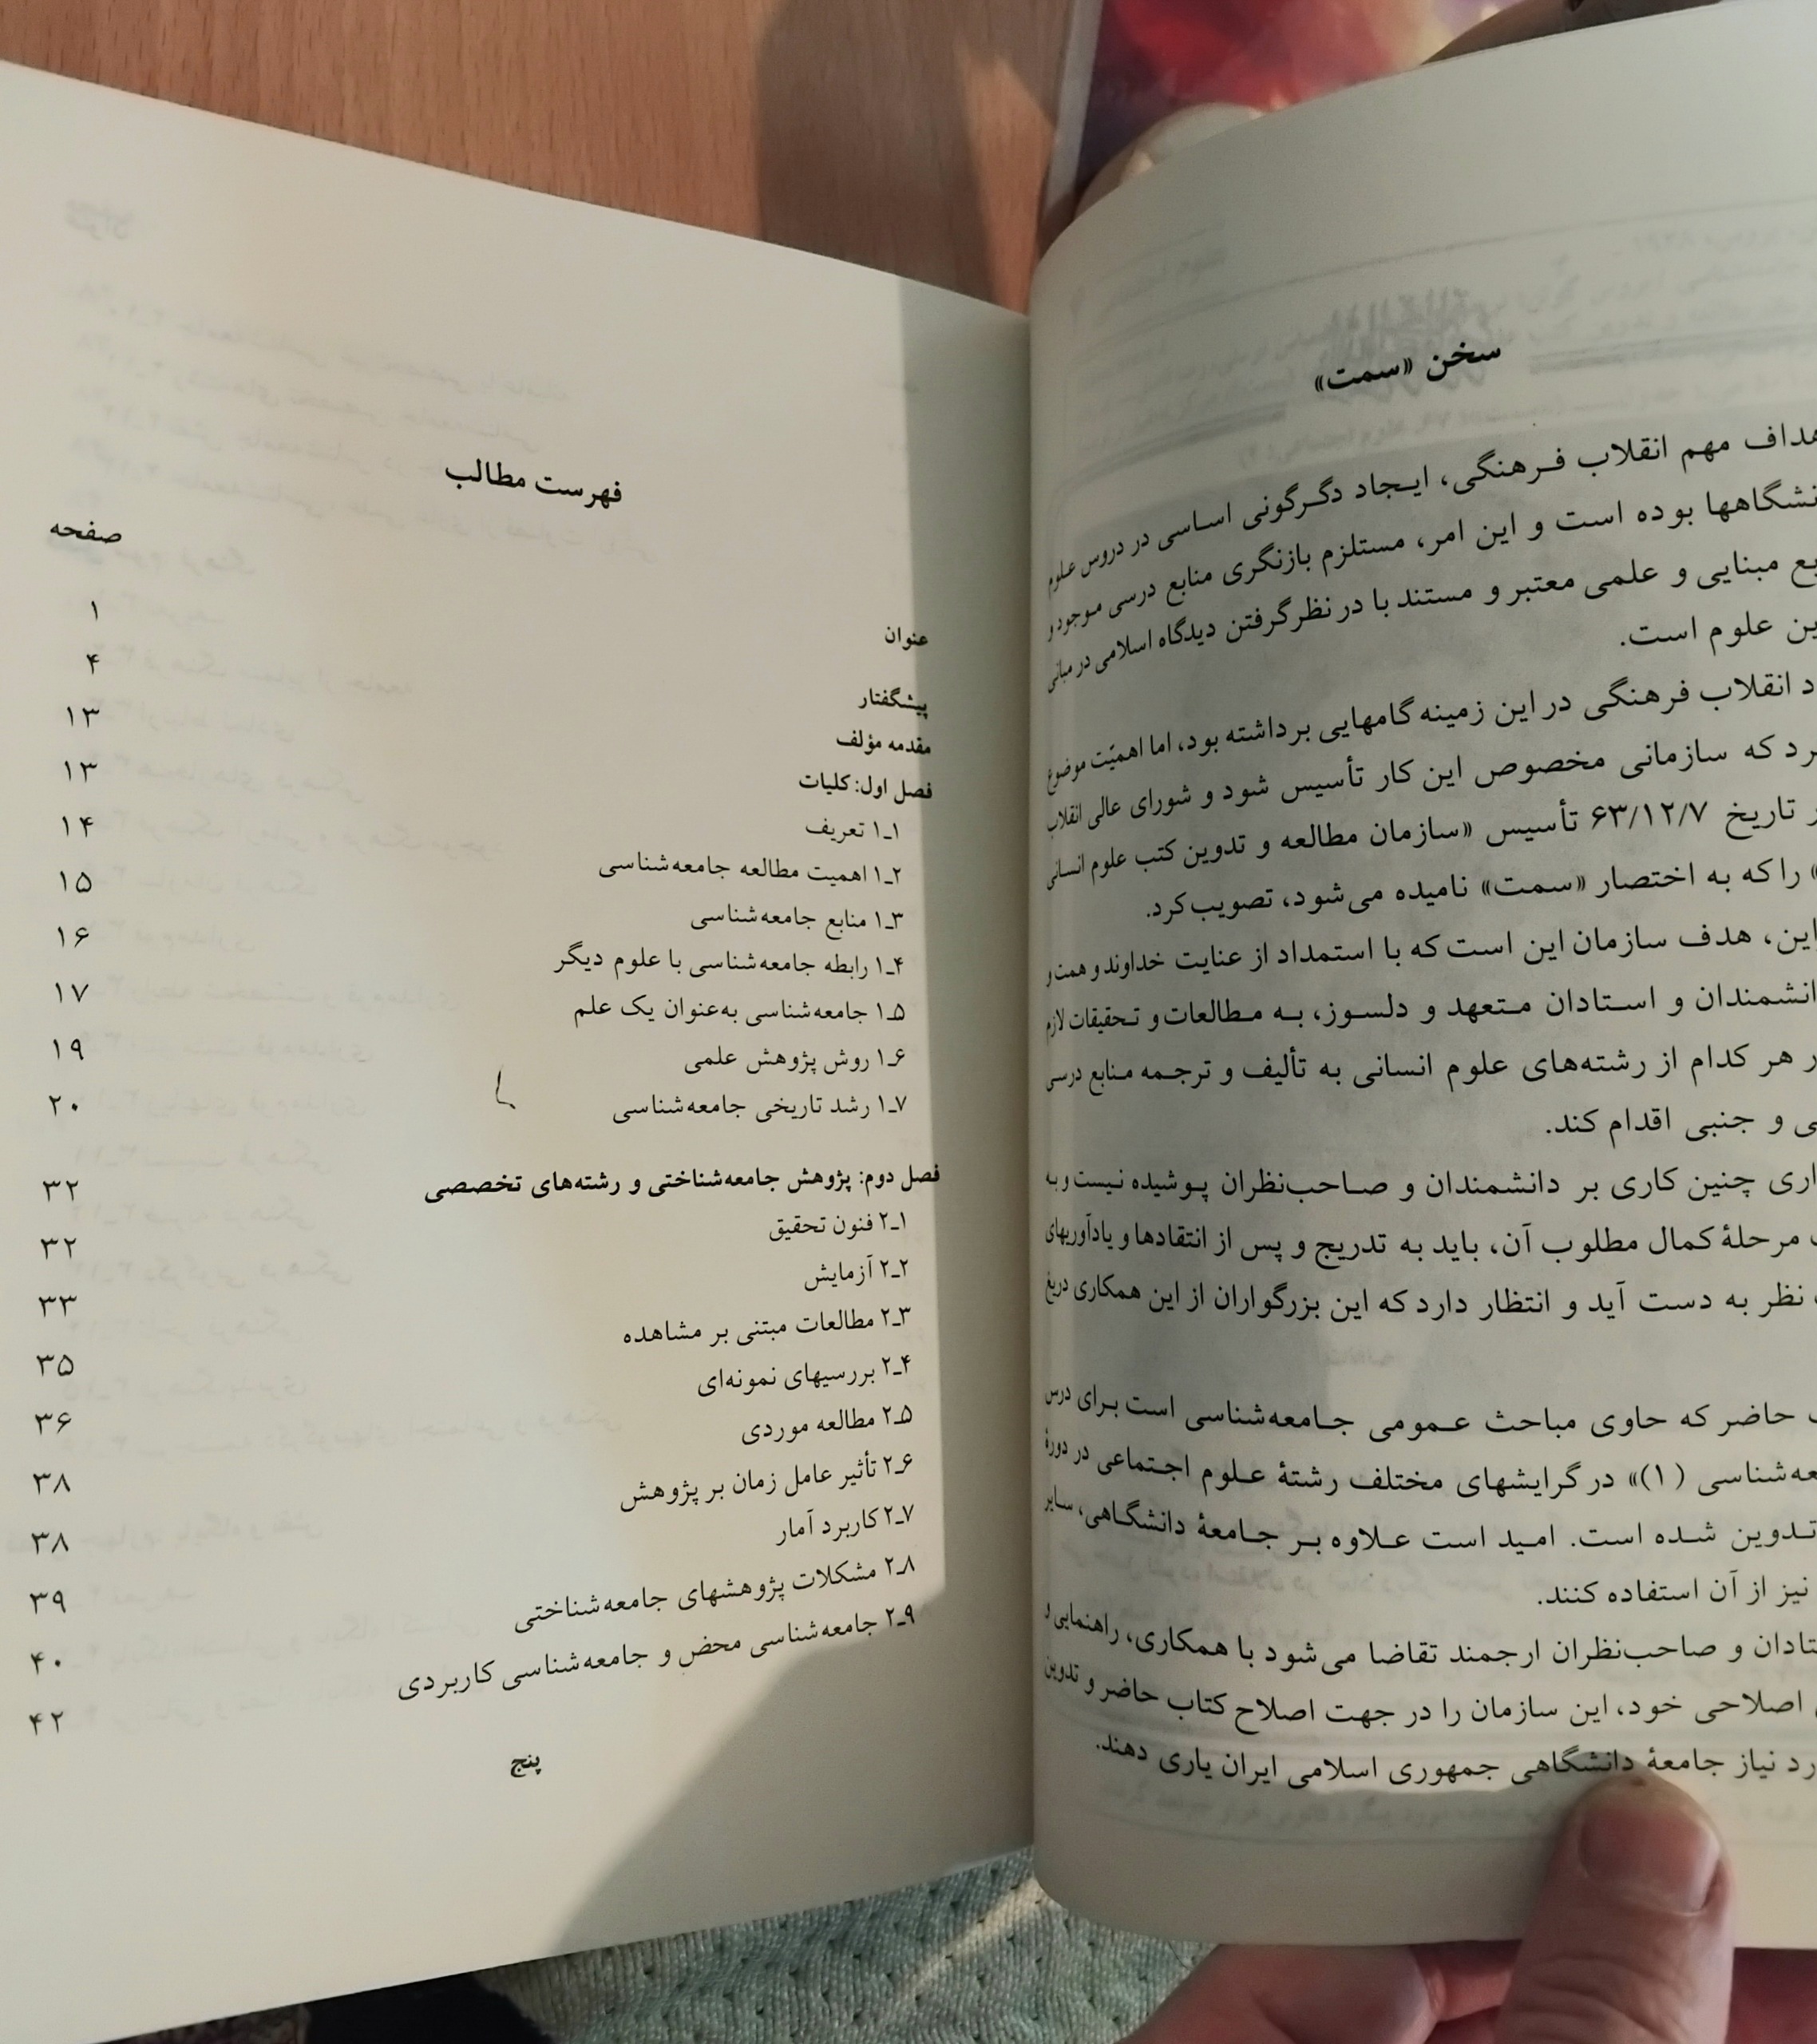 سخن «سمت»
هداف مهم انقلاب فرهنگی، ایجاد دگرگونی اساسی در دروس علوم
نشگاهها بوده است و این امر، مستلزم بازنگری منابع درسی موجود و
بع مبنایی و علمی معتبر و مستند با در نظر گرفتن دیدگاه اسلامی در مبانی
ین علوم است.
د انقلاب فرهنگی در این زمینه گامهایی برداشته بود، اما اهمیّت موضوع
رد که سازمانی مخصوص این کار تأسیس شود و شورای عالی انقلاب
ر تاریخ ۶۳/۱۲/۷ تأسیس «سازمان مطالعه و تدوین کتب علوم انسانی
» را که به اختصار «سمت» نامیده می‌شود، تصویب کرد.
این، هدف سازمان این است که با استمداد از عنایت خداوند و همت و
انشمندان و استادان متعهد و دلسوز، به مطالعات و تحقیقات لازم
ر هر کدام از رشته‌های علوم انسانی به تألیف و ترجمه منابع درسی
ی و جنبی اقدام کند.
اری چنین کاری بر دانشمندان و صاحب‌نظران پوشیده نیست و به
مرحلهٔ کمال مطلوب آن، باید به تدریج و پس از انتقادها و یادآوریهای
نظر به دست آید و انتظار دارد که این بزرگواران از این همکاری دریغ
ب حاضر که حاوی مباحث عمومی جامعه‌شناسی است برای درس
عه‌شناسی (۱)» در گرایشهای مختلف رشتهٔ علوم اجتماعی در دورهٔ
تدوین شده است. امید است علاوه بر جامعهٔ دانشگاهی، سایر
نیز از آن استفاده کنند.
ستادان و صاحب‌نظران ارجمند تقاضا می‌شود با همکاری، راهنمایی و
اصلاحی خود، این سازمان را در جهت اصلاح کتاب حاضر و تدوین
رد نیاز جامعهٔ دانشگاهی جمهوری اسلامی ایران یاری دهند.
فهرست مطالب
عنوان صفحه
پیشگفتار ۱
مقدمه مؤلف ۴
فصل اول: کلیات ۱۳
۱ـ۱ تعریف ۱۳
۱ـ۲ اهمیت مطالعه جامعه‌شناسی ۱۴
۱ـ۳ منابع جامعه‌شناسی ۱۵
۱ـ۴ رابطه جامعه‌شناسی با علوم دیگر ۱۶
۱ـ۵ جامعه‌شناسی به‌عنوان یک علم ۱۷
۱ـ۶ روش پژوهش علمی ۱۹
۱ـ۷ رشد تاریخی جامعه‌شناسی ۲۰
فصل دوم: پژوهش جامعه‌شناختی و رشته‌های تخصصی ۳۲
۲ـ۱ فنون تحقیق ۳۲
۲ـ۲ آزمایش ۳۳
۲ـ۳ مطالعات مبتنی بر مشاهده ۳۵
۲ـ۴ بررسیهای نمونه‌ای ۳۶
۲ـ۵ مطالعه موردی ۳۸
۲ـ۶ تأثیر عامل زمان بر پژوهش ۳۸
۲ـ۷ کاربرد آمار ۳۹
۲ـ۸ مشکلات پژوهشهای جامعه‌شناختی ۴۰
۲ـ۹ جامعه‌شناسی محض و جامعه‌شناسی کاربردی ۴۲
پنج